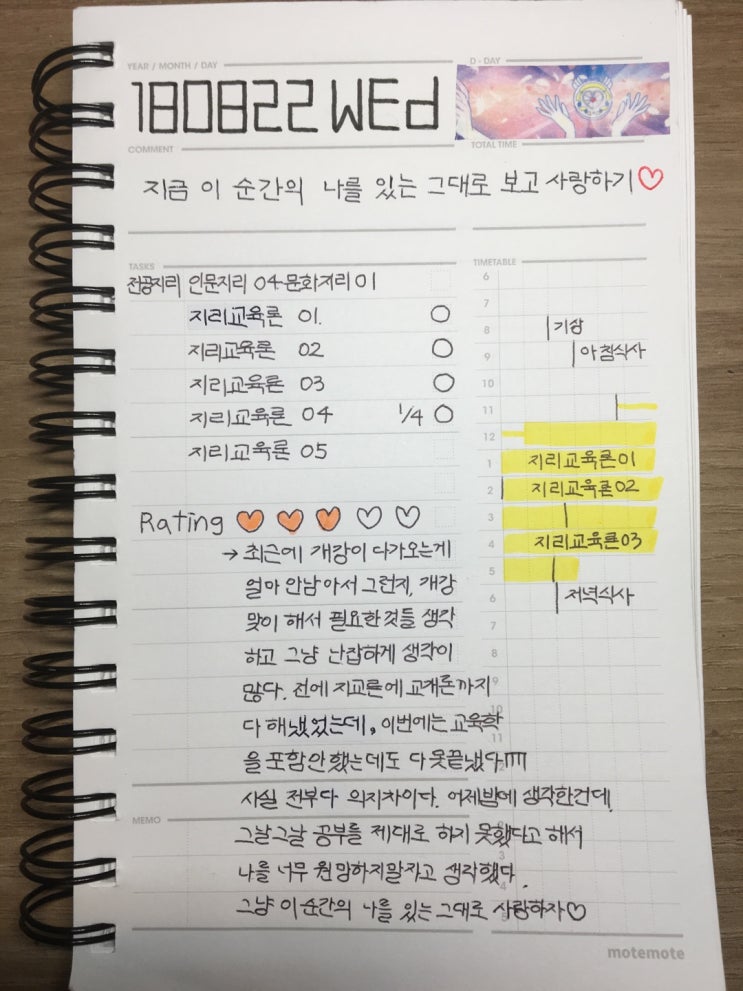 YEAR / MONTH / DAY
D - DAY
180822 WEd
COMMENT
TOTAL TIME
지금 이 순간의 나를 있는 그대로 보고 사랑하기♡
TASKS
전공지리 인문지리 04-문화지리 01
지리교육론 01. ○
지리교육론 02 ○
지리교육론 03 ○
지리교육론 04 1/4 ○
지리교육론 05
TIMETABLE
6
7
8 기상
9 아침식사
10
11
12
1 지리교육론01
2 지리교육론02
3
4 지리교육론03
5
6 저녁식사
7
8
9
10
11
Rating ♥ ♥ ♥ ♡ ♡
→ 최근에 개강이 다가오는게
얼마 안남아서 그런지, 개강
맞이 해서 필요한것들 생각
하고 그냥 난잡하게 생각이
많다. 전에 지교론에 교재론까지
다 해냈었는데, 이번에는 교육학
을 포함안했는데도 다 못끝냈다
사실 전부다 의지차이다. 어제밤에 생각한건데,
MEMO
그날그날 공부를 제대로 하지 못했다고 해서
나를 너무 원망하지말자고 생각했다.
그냥 이 순간의 나를 있는 그대로 사랑하자♡
motemote